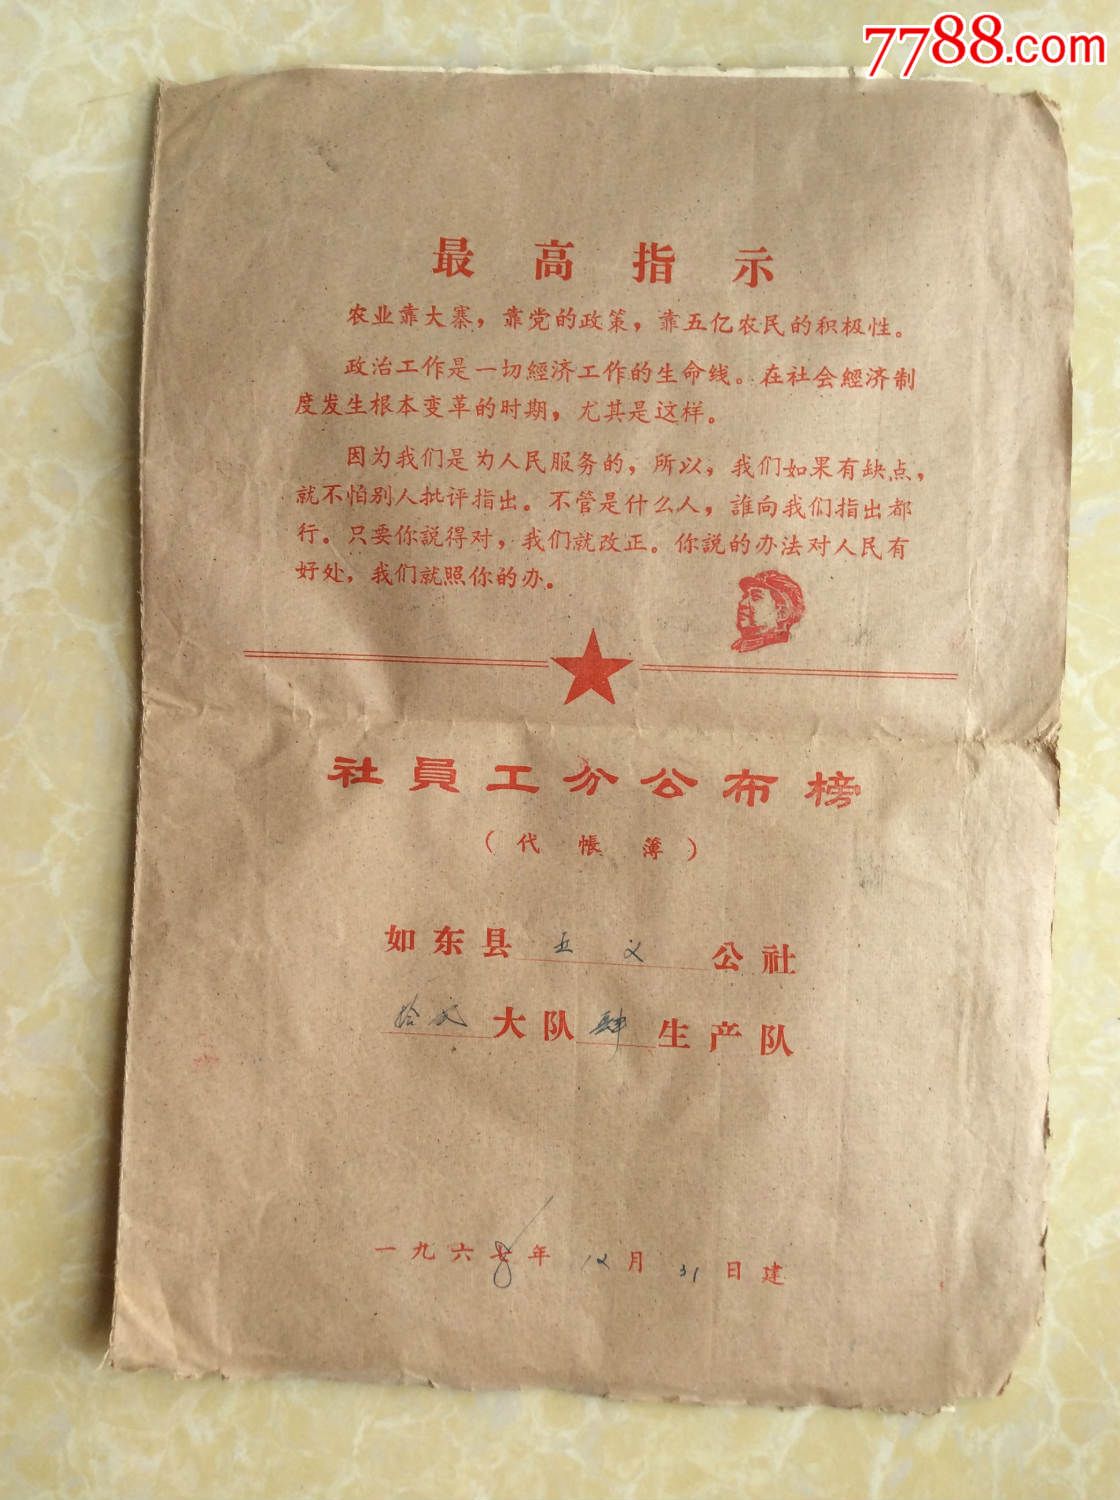 7788.com
最高指示
农业靠大寨，靠党的政策，靠五亿农民的积极性。
政治工作是一切經济工作的生命线。在社会經济制
度发生根本变革的时期，尤其是这样。
因为我们是为人民服务的，所以，我们如果有缺点，
就不怕别人批评指出。不管是什么人，誰向我们指出都
行。只要你説得对，我们就改正。你説的办法对人民有
好处，我们就照你的办。
社員工分公布榜
（代帳簿）
如东县五义公社
拾弍大队肆生产队
一九六8年12月31日建